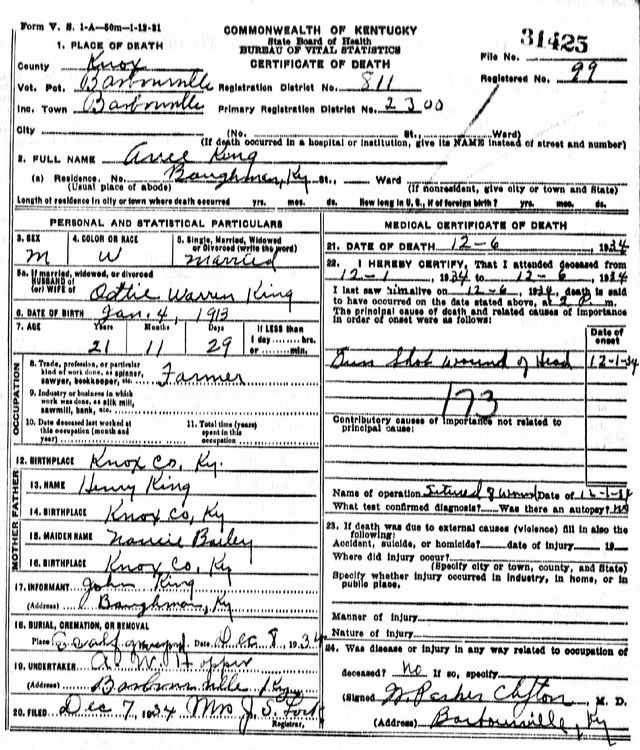 Form V. S. 1-A—50m—1-12-31
COMMONWEALTH OF KENTUCKY
State Board of Health
BUREAU OF VITAL STATISTICS
CERTIFICATE OF DEATH
31425
File No.
Registered No. 99
1. PLACE OF DEATH
County Knox
Vot. Pct. Barbourville Registration District No. 811
Inc. Town Barbourville Primary Registration District No. 2300
City (No. St., Ward)
(If death occurred in a hospital or institution, give its NAME instead of street and number)
2. FULL NAME King
(a) Residence. No. Baughman, Ky St., Ward
(Usual place of abode) (If nonresident, give city or town and State)
Length of residence in city or town where death occurred yrs. mos. ds. How long in U. S., if of foreign birth? yrs. mos. ds.
PERSONAL AND STATISTICAL PARTICULARS
3. SEX M
4. COLOR OR RACE W
5. Single, Married, Widowed or Divorced (write the word) married
5a. If married, widowed, or divorced
HUSBAND of
(or) WIFE of Warren King
6. DATE OF BIRTH Jan. 4, 1913
7. AGE Years Months Days If LESS than
21 11 29 1 day hrs.
or min.
OCCUPATION
8. Trade, profession, or particular
kind of work done, as spinner,
sawyer, bookkeeper, etc. Farmer
9. Industry or business in which
work was done, as silk mill,
sawmill, bank, etc.
10. Date deceased last worked at
this occupation (month and
year)
11. Total time (years)
spent in this
occupation
12. BIRTHPLACE Knox Co, Ky.
FATHER
13. NAME Henry King
14. BIRTHPLACE Knox Co, Ky
MOTHER
15. MAIDEN NAME Nancie Bailey
16. BIRTHPLACE Knox Co, Ky
17. INFORMANT John King
(Address) Baughman, Ky
18. BURIAL, CREMATION, OR REMOVAL
Place Date Dec 8, 1934
19. UNDERTAKER A. W. Hopper
(Address) Barbourville Ky
20. FILED Dec 7, 1934 Mrs J. S.
Registrar.
MEDICAL CERTIFICATE OF DEATH
21. DATE OF DEATH 12-6, 1934
22. I HEREBY CERTIFY, That I attended deceased from
12-1, 1934 to 12-6, 1934
I last saw him alive on 12-6, 1934, death is said
to have occurred on the date stated above, at 2 P m.
The principal cause of death and related causes of importance
in order of onset were as follows:
Date of
onset
Gun Shot wound of Head 12-1-34
173
Contributory causes of importance not related to
principal cause:
Name of operation Date of 12-1-34
What test confirmed diagnosis? Was there an autopsy? no
23. If death was due to external causes (violence) fill in also the
following:
Accident, suicide, or homicide? date of injury 19
Where did injury occur?
(Specify city or town, county, and State)
Specify whether injury occurred in industry, in home, or in
public place.
Manner of injury
Nature of injury
24. Was disease or injury in any way related to occupation of
deceased? No If so, specify
(Signed) Parker Clifton, M. D.
(Address) Barbourville, Ky